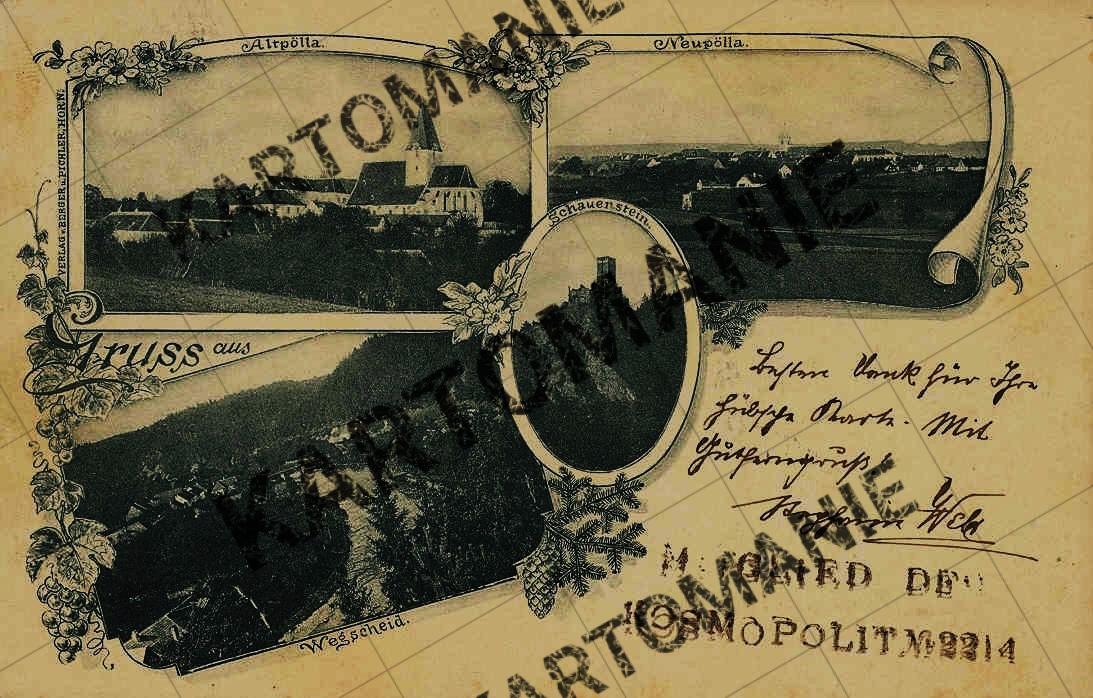 Altpölla.
Neupölla.
VERLAG v. BERGER u. PICHLER, HORN.
Schauerstein.
Gruss aus
Wegscheid.
Besten Dank für Ihre
hübsche Karte. Mit
MITGLIED DES
KOSMOPOLIT № 2214
KARTOMANIE
KARTOMANIE
KARTOMANIE
KARTOMANIE